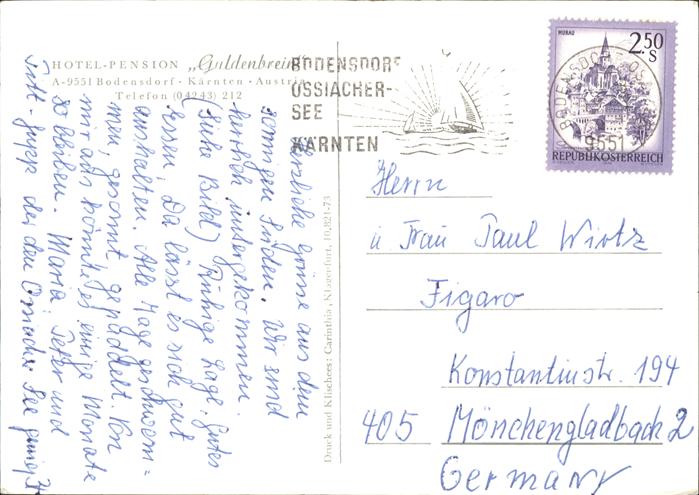 HOTEL-PENSION „Guldenbrein“
A-9551 Bodensdorf · Kärnten · Austria
Telefon (04243) 212
BODENSDORF
OSSIACHER-
SEE
KÄRNTEN
MURAU
2.50
S
REPUBLIK ÖSTERREICH
9551
Herzliche Grüsse aus dem
sonnigen Süden. Wir sind
herrlich untergekommen.
(siehe Bild) Ruhige Lage. Gutes
Essen. Da lässt es sich gut
aushalten. Alle Tage geschwom=
men, gesonnt, gepaddelt. Von
mir aus könnte es einige Monate
so bleiben. Maria Peter und
Jutt- der den Ossiacher See
Druck und Klischees: Carinthia, Klagenfurt, 10.821-73
Herrn
u Frau Paul Wirtz
Figaro
Konstantinstr. 194
405 Mönchengladbach 2
Germany